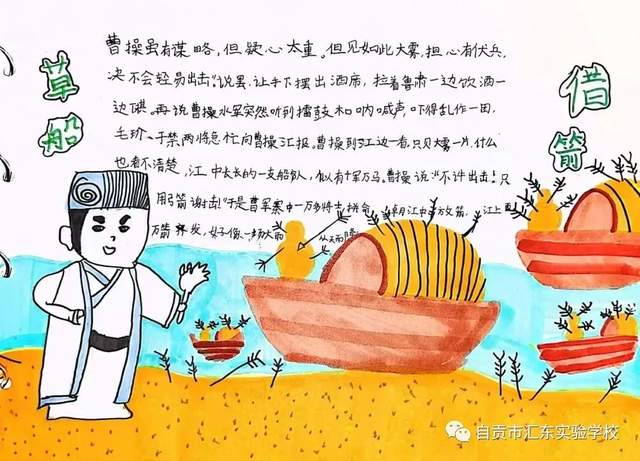 草船
借箭
曹操虽有谋略,但疑心太重。但见如此大雾,担心有伏兵,
决不会轻易出击"说罢,让手下摆出酒席,拉着鲁肃一边饮酒一
边谈。再说曹操水军突然听到擂鼓和呐喊声,吓得乱作一团,
毛玠、于禁两将急忙向曹操汇报。曹操到江边一看,只见大雾一片,什么
也看不清楚,江中长长的一支船队,似有千军万马。曹操说:"不许出击!只
用弓箭射击!"于是曹军寨中一万多将士拼命朝江中放箭,江上
万箭齐发,好像一场大雨从天而降
自贡市汇东实验学校